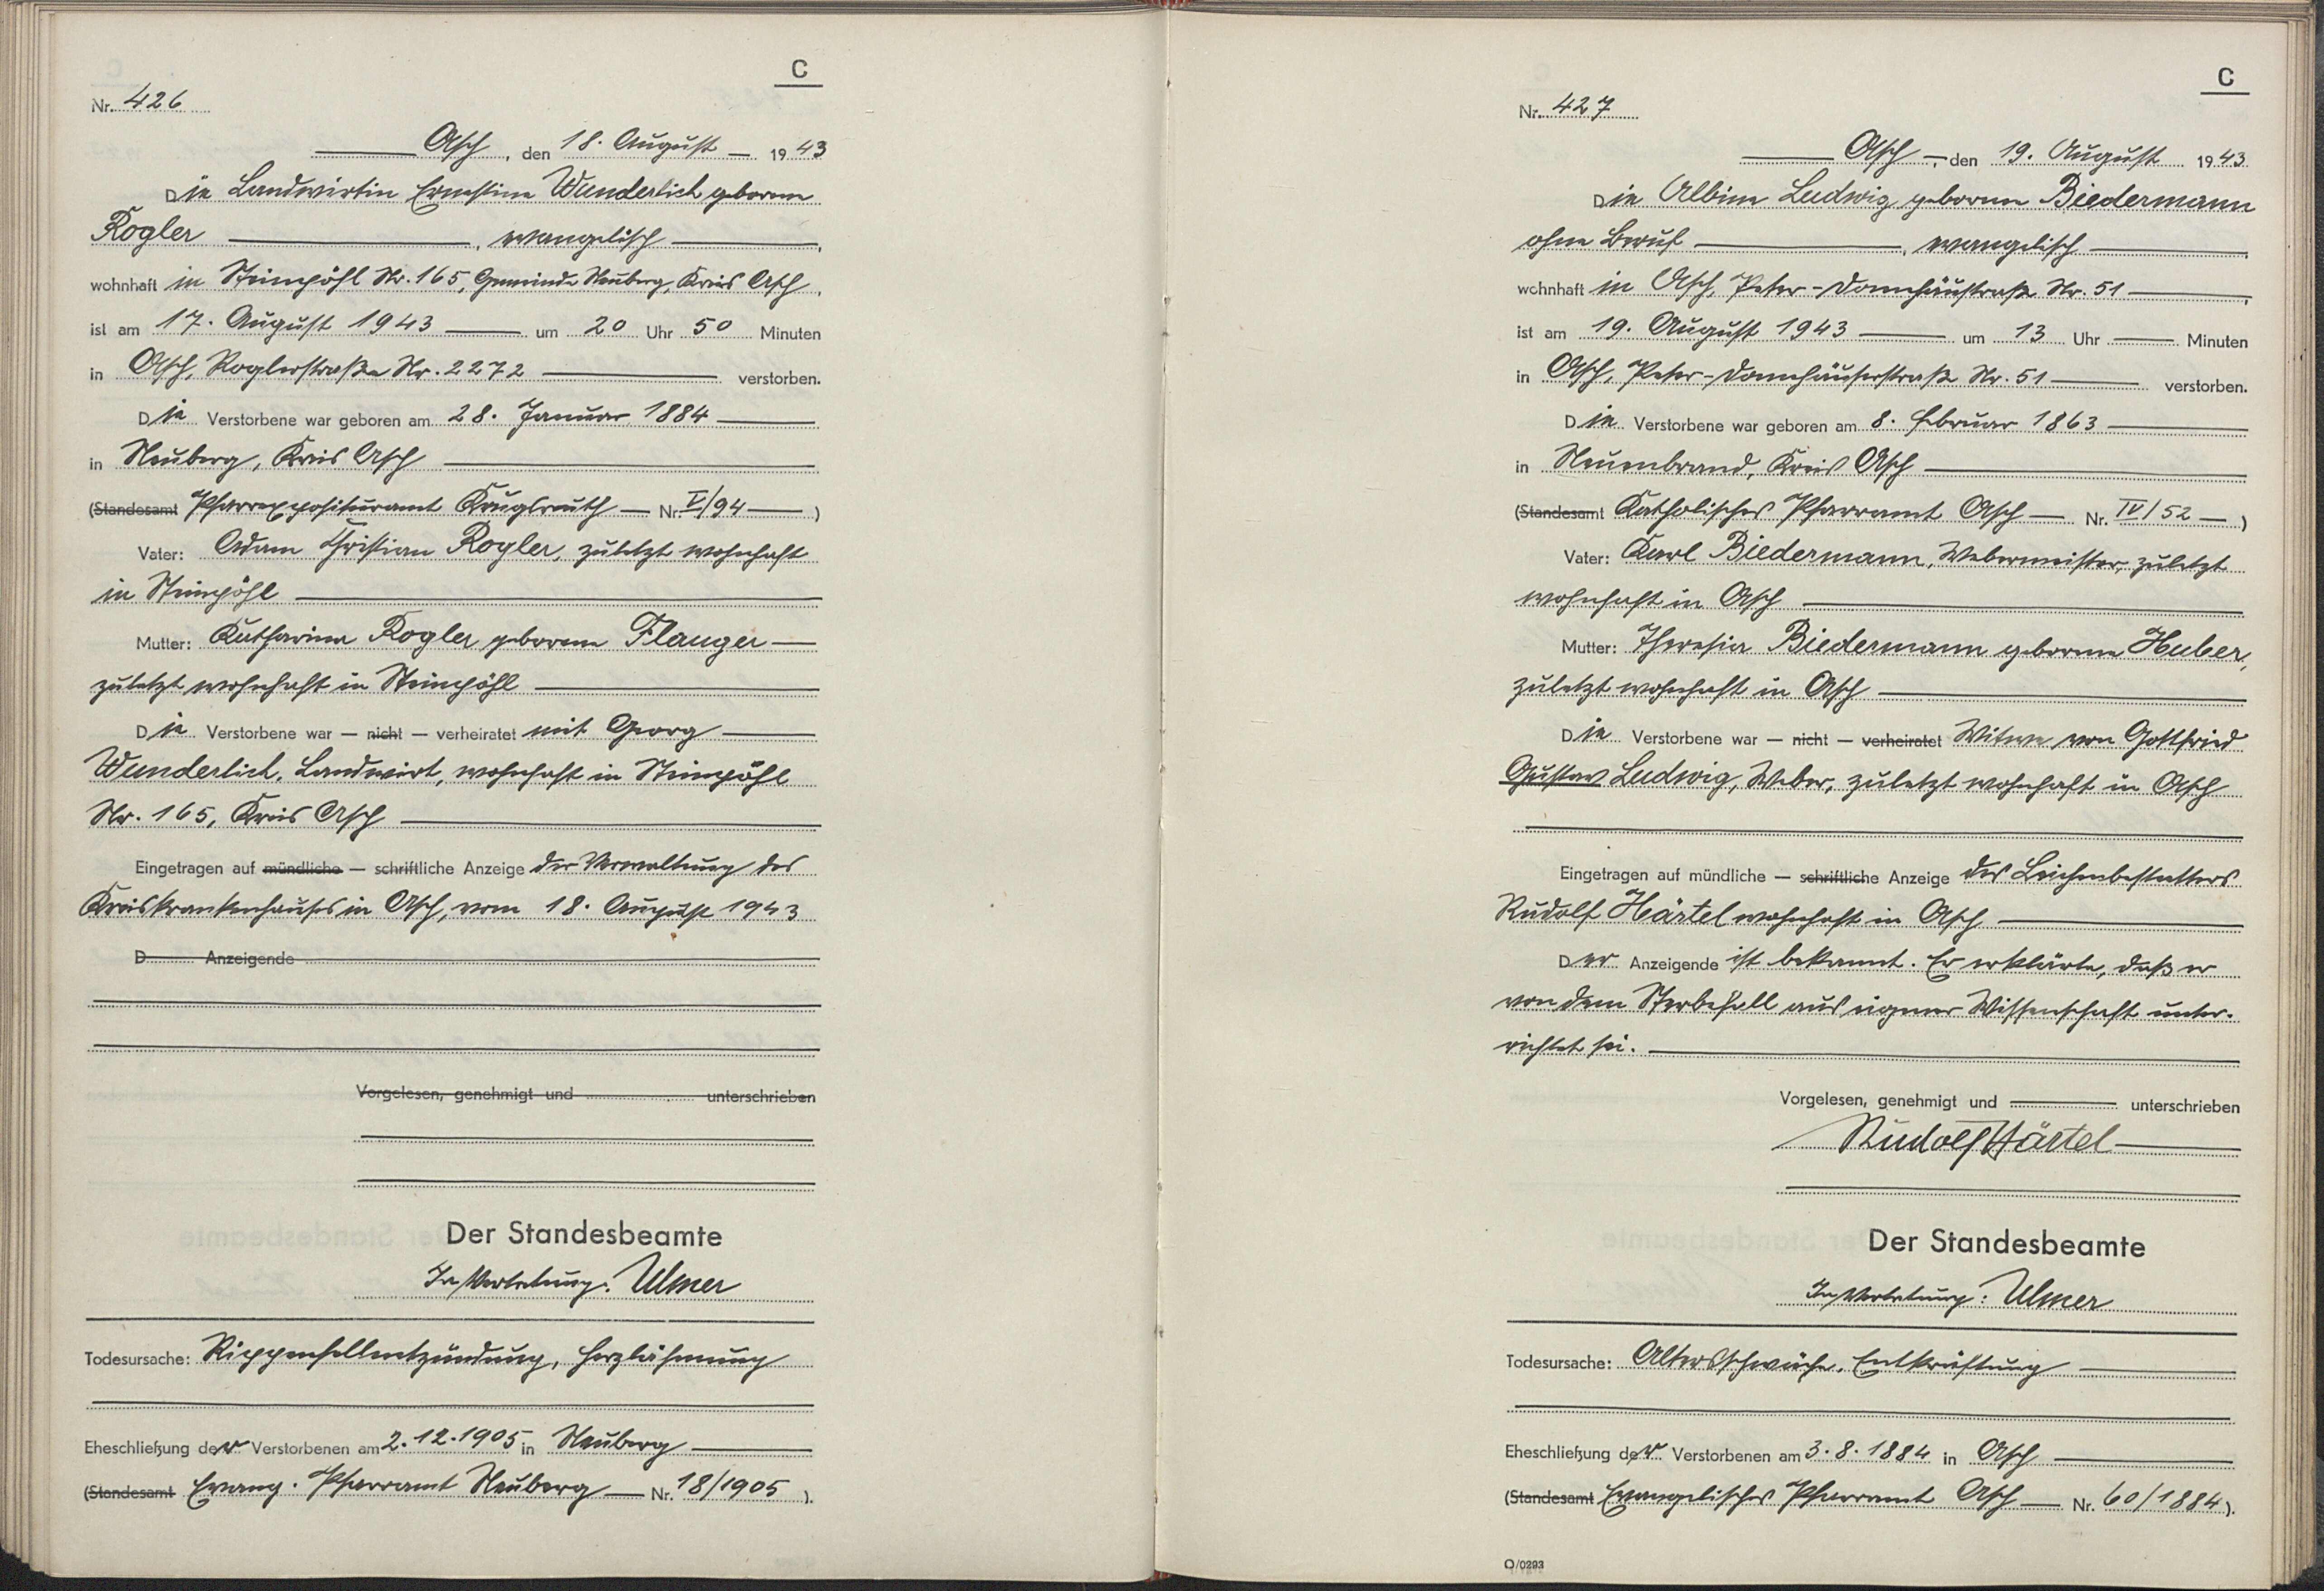 C
Nr. 426
Asch, den 18. August 1943
Die Landwirtin Ernestine Wunderlich geborene
Rogler, evangelisch,
wohnhaft in Steinpöhl Nr. 165, Gemeinde Neuberg, Kreis Asch,
ist am 17. August 1943 um 20 Uhr 50 Minuten
in Asch, Roglerstraße Nr. 2272 verstorben.
Die Verstorbene war geboren am 28. Januar 1884
in Neuberg, Kreis Asch
(Standesamt Pfarrexposituramt Krugsreuth — Nr. V/94 — )
Vater: Adam Christian Rogler, zuletzt wohnhaft
in Steinpöhl
Mutter: Katharina Rogler geborene Flauger
zuletzt wohnhaft in Steinpöhl
Die Verstorbene war — nicht — verheiratet mit Georg
Wunderlich, Landwirt, wohnhaft in Steinpöhl
Nr. 165, Kreis Asch
Eingetragen auf mündliche — schriftliche Anzeige der Verwaltung des
Kreiskrankenhauses in Asch, vom 18. August 1943
D Anzeigende
Vorgelesen, genehmigt und unterschrieben
Der Standesbeamte
In Vertretung: Ulmer
Todesursache: Rippenfellentzündung, Herzlähmung
Eheschließung der Verstorbenen am 2.12.1905 in Neuberg
(Standesamt Evang. Pfarramt Neuberg — Nr. 18/1905 ).
C
Nr. 427
Asch, den 19. August 1943
Die Albine Ludwig geborene Biedermann
ohne Beruf, evangelisch
wohnhaft in Asch, Peter-Donnhäustraße Nr. 51,
ist am 19. August 1943 um 13 Uhr — Minuten
in Asch, Peter-Donnhäuserstraße Nr. 51 verstorben.
Die Verstorbene war geboren am 8. Februar 1863
in Neuenbrand, Kreis Asch
(Standesamt Katholisches Pfarramt Asch — Nr. IV/52 — )
Vater: Karl Biedermann, Webermeister, zuletzt
wohnhaft in Asch
Mutter: Theresia Biedermann geborene Huber,
zuletzt wohnhaft in Asch
Die Verstorbene war — nicht — verheiratet Witwe von Gottfried
Gustav Ludwig, Weber, zuletzt wohnhaft in Asch
Eingetragen auf mündliche — schriftliche Anzeige des Leichenbestatters
Rudolf Härtel wohnhaft in Asch
Der Anzeigende ist bekannt. Er erklärte, daß er
von dem Sterbefall aus eigener Wissenschaft unter-
richtet sei.
Vorgelesen, genehmigt und unterschrieben
Rudolf Härtel
Der Standesbeamte
In Vertretung: Ulmer
Todesursache: Altersschwäche, Entkräftung
Eheschließung der Verstorbenen am 3.8.1884 in Asch
(Standesamt Evangelisches Pfarramt Asch — Nr. 60/1884).
O/0293